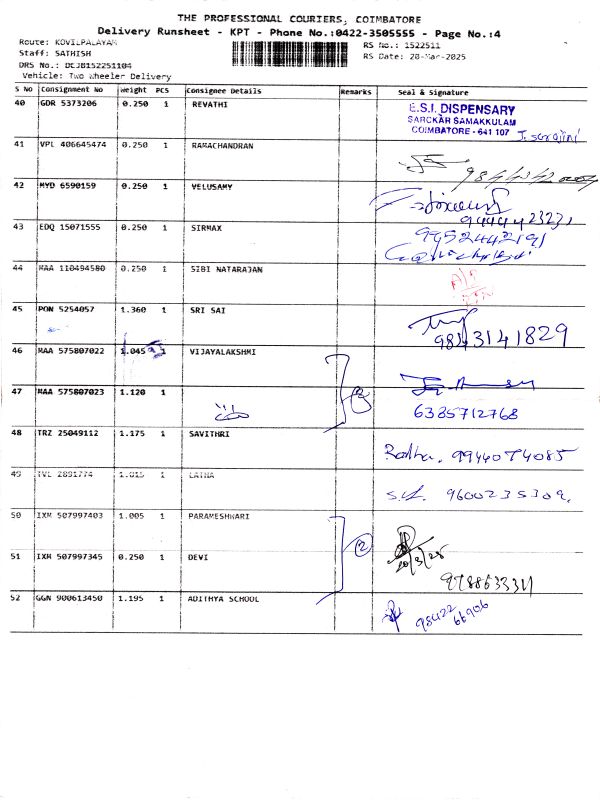 THE PROFESSIONAL COURIERS, COIMBATORE
Delivery Runsheet - KPT - Phone No.:0422-3505555 - Page No.:4
Route: KOVILPALAYAM
Staff: SATHISH
DRS No.: DCJB152251104
Vehicle: Two Wheeler Delivery
RS No.: 1522511
RS Date: 20-Mar-2025
S No Consignment No Weight PCS Consignee Details Remarks Seal & Signature
40 GDR 5373206 0.250 1 REVATHI
E.S.I. DISPENSARY
SARCKAR SAMAKKULAM
COIMBATORE - 641 107 J. Sarojini
41 VPL 406645474 0.250 1 RAMACHANDRAN
42 MYD 6590159 0.250 1 VELUSAMY
43 EDQ 15071555 0.250 1 SIRMAX 9952442191
44 MAA 110494580 0.250 1 SIBI NATARAJAN
45 PON 5254057 1.360 1 SRI SAI
9843141829
46 MAA 575807022 1.045 1 VIJAYALAKSHMI
47 MAA 575807023 1.120 1
6385712768
48 TRZ 25049112 1.175 1 SAVITHRI Radha. 9944074085
49 TVL 2891774 1.015 1 LATHA 9600235309.
50 IXM 507997403 1.005 1 PARAMESHWARI
2
20/3/25
51 IXM 507997345 0.250 1 DEVI
52 GGN 900613450 1.195 1 ADITHYA SCHOOL
98422
66906